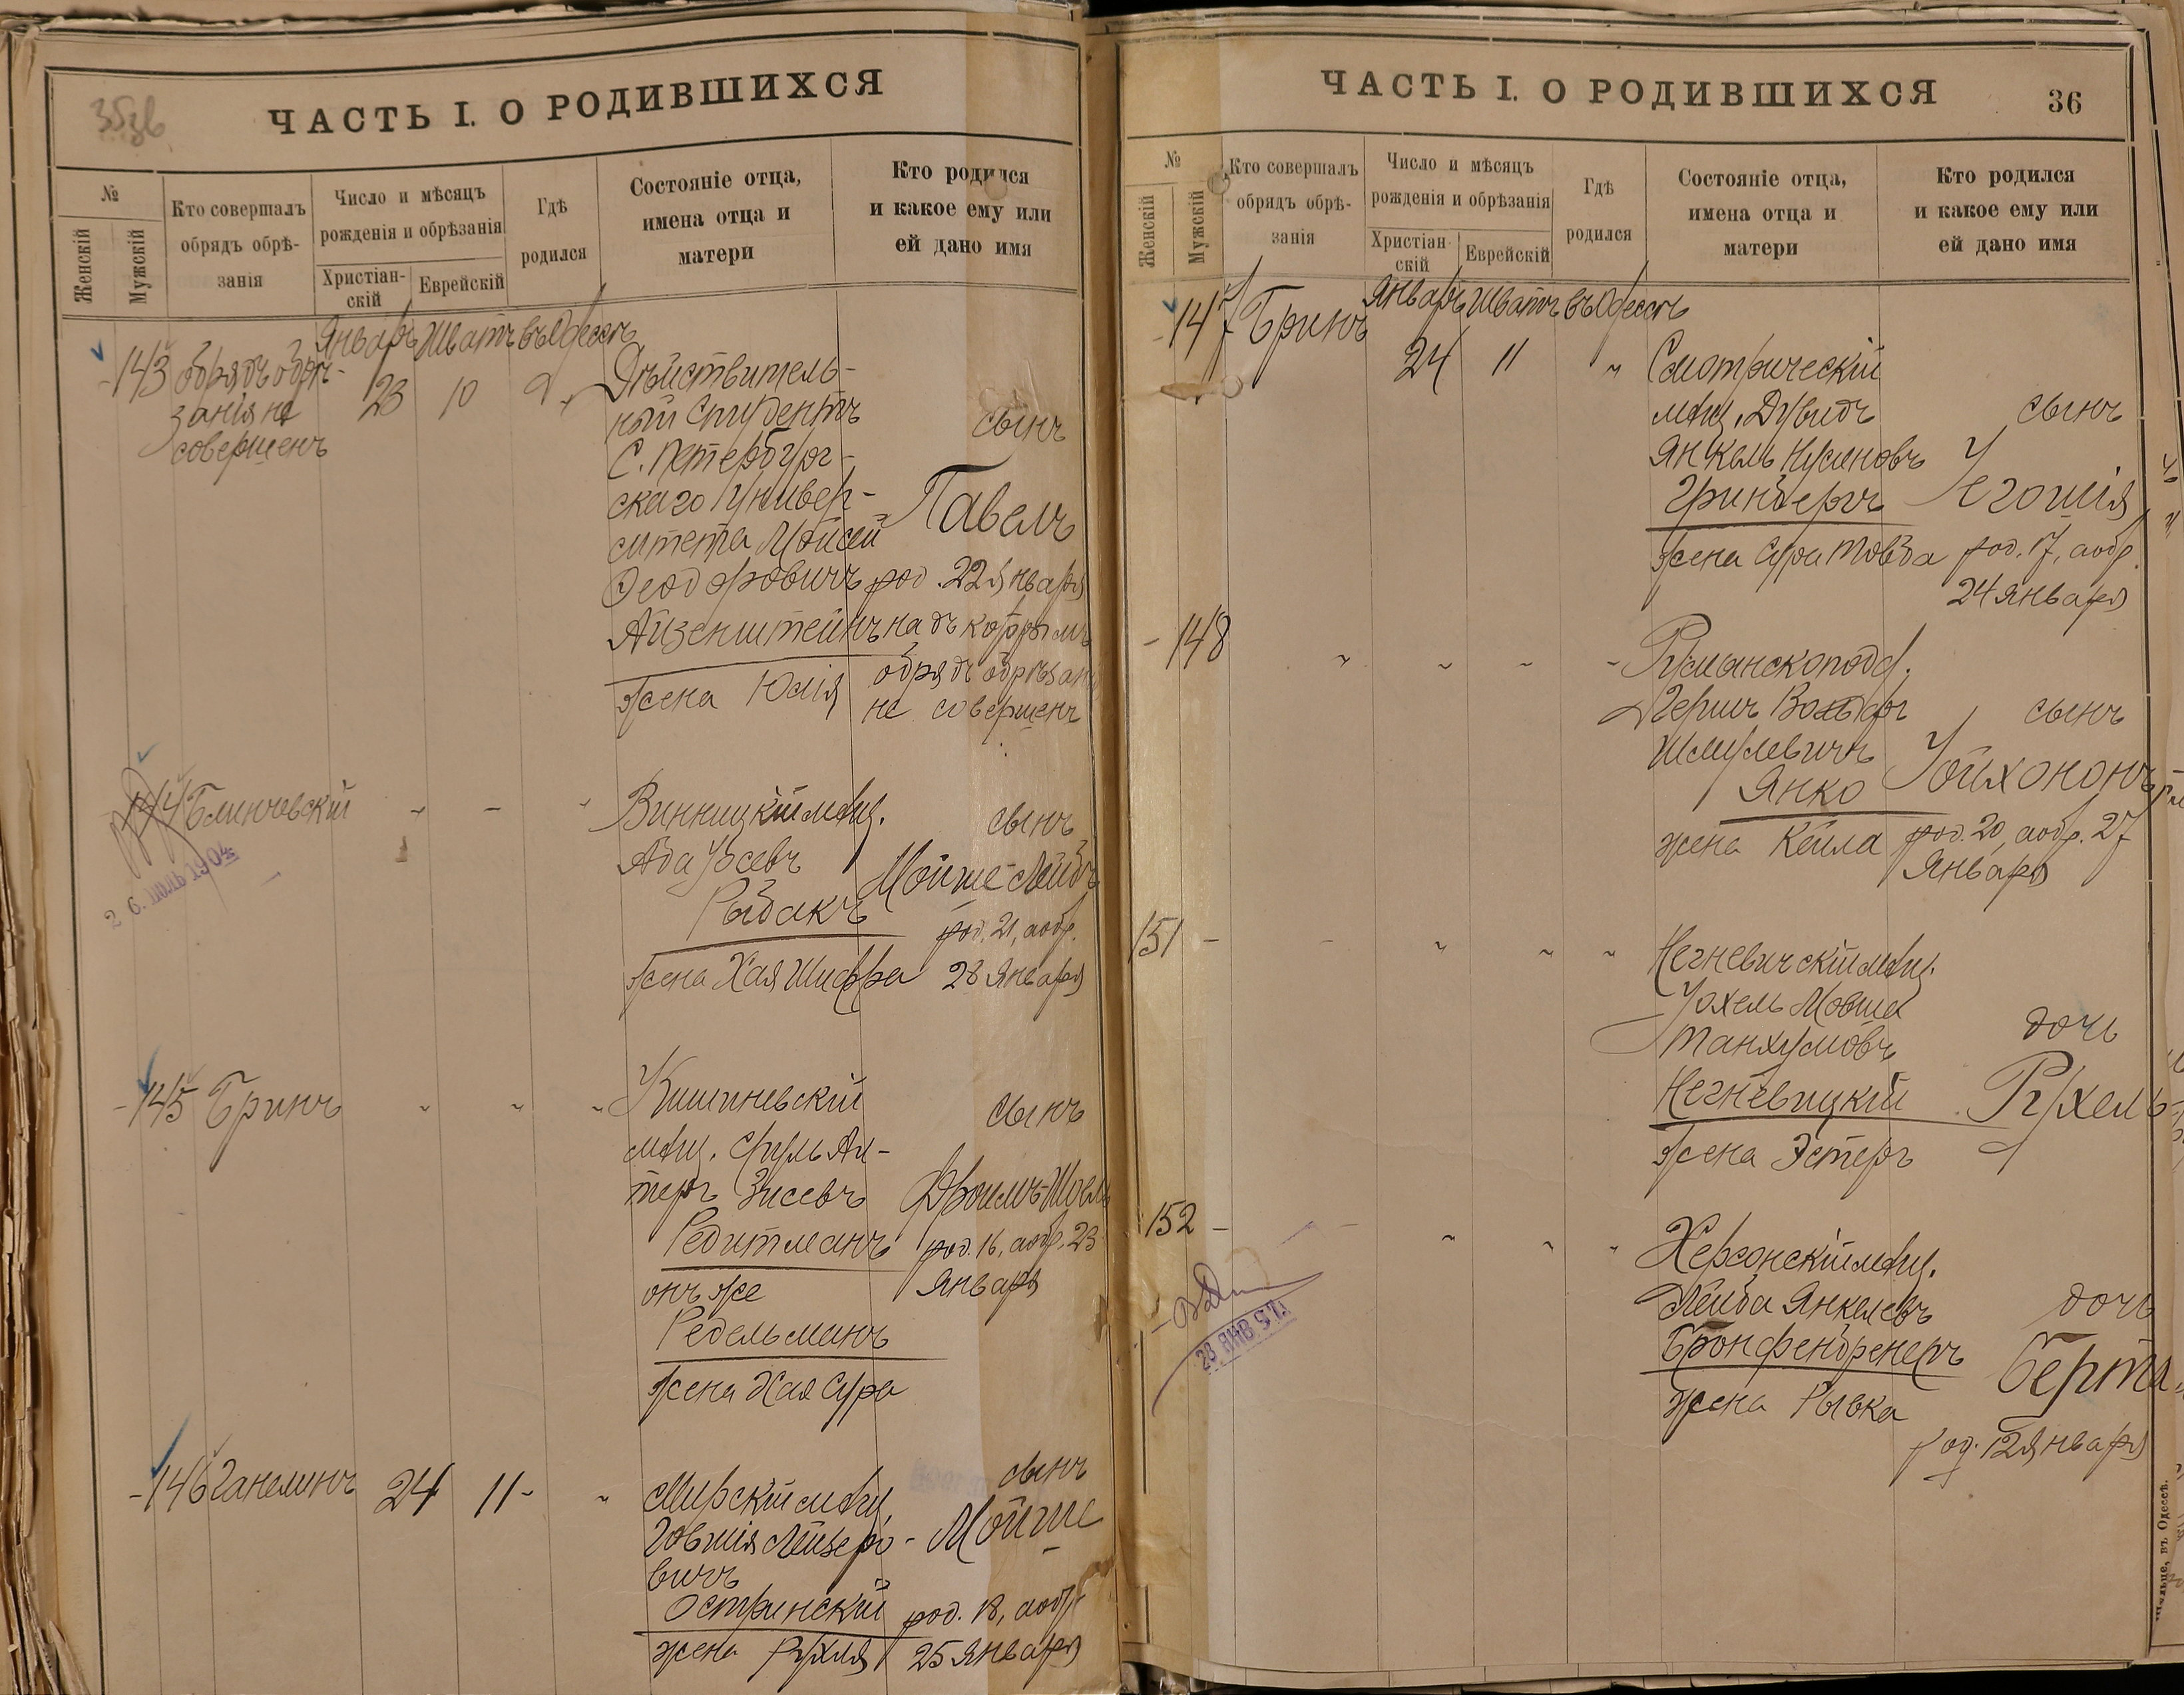 35зв
ЧАСТЬ I. О РОДИВШИХСЯ
№
Женскій
Мужскій
Кто совершалъ
обрядъ обрѣ-
занія
Число и мѣсяцъ
рожденія и обрѣзанія
Христіан-
скій
Еврейскій
Гдѣ
родился
Состояніе отца,
имена отца и
матери
Кто родился
и какое ему или
ей дано имя
Январь Шватъ въ Одессѣ
143 обрядъ обрѣ-
занія не
совершенъ
23 10
Дѣйствитель-
ный Студентъ
С. Петербург-
скаго Универ-
ситета Мойсей
Феодоровичъ
Айзенштейнъ
жена Юлія
сынъ
Павелъ
род. 22 Января
надъ которымъ
обрядъ обрѣзанія
не совершенъ
144 Блинчовскій
26. ІЮЛЬ 1904
Винницкій мѣщ.
Аба Уосевъ
Рыбакъ
жена Хая Шифра
сынъ
Мойше-Лейбъ
род. 21, аобр.
28 Января
145 Бринъ
Кишиневскій
мѣщ. Сруль Ал-
теръ Зисевъ
Редитманъ
онъ же
Редельманъ
жена Хая Сура
сынъ
Фроимъ-Шоелъ
род. 16, аобр. 23
Января
146 Ганелинъ 24 11
Мирскій мѣщ.
Говшія Лейзеро-
вичъ
Остринскій
жена Рухля
сынъ
Мойше
род. 18, аобр.
25 Января
ЧАСТЬ I. О РОДИВШИХСЯ
36
№
Женскій
Мужскій
Кто совершалъ
обрядъ обрѣ-
занія
Число и мѣсяцъ
рожденія и обрѣзанія
Христіан-
скій
Еврейскій
Гдѣ
родился
Состояніе отца,
имена отца и
матери
Кто родился
и какое ему или
ей дано имя
Январь Шватъ въ Одессѣ
147 Бринъ 24 11 "
Смотрическій
мѣщ. Дувидъ
Янкель Нусиновъ
Гринбергъ
жена Сура Товба
сынъ
Усгошія
род. 17, аобр.
24 Января
148
Румынскоподд.
Гершъ Вольфъ
Шмулевичъ
Янко
жена Кейла
сынъ
Уойхононъ
род. 20, аобр. 27
Января
151
Негневичскій мѣщ.
Уохель Мовша
Танхумовъ
Негневицкій
жена Эстеръ
дочь
Рухель
152
28 ЯНВ. 912
Херсонскій мѣщ.
Лейба Янкелевъ
Бронфенбренеръ
жена Рывка
дочь
Берта
род. 12 Января
въ Одессѣ.